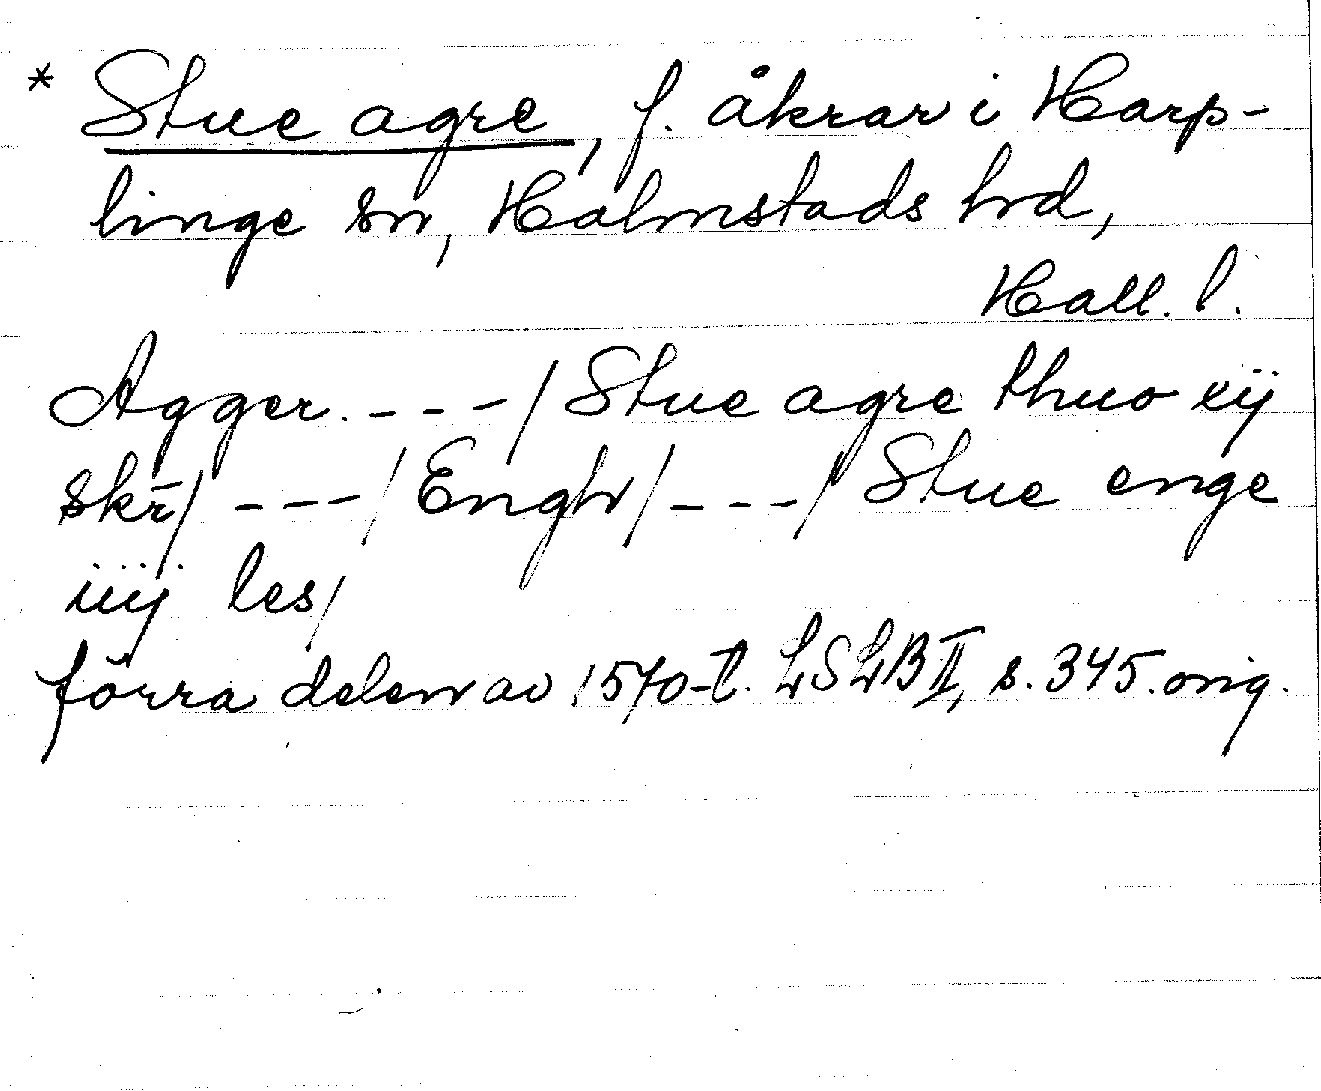 * Stue agre, f. åkrar i Harp-
linge sn, Halmstads hrd,
Hall. l.
Agger. - - - / Stue agre thuo xij
skr̄ / - - - / Engh / - - - / Stue enge
iiij les /
förra delen av 1570-t. LSLB II, s. 345. orig.